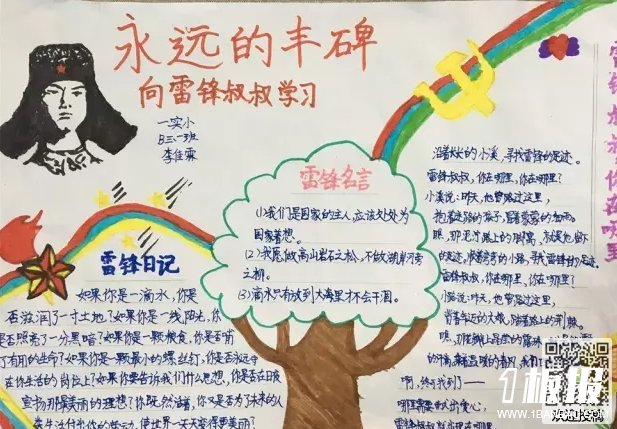 永远的丰碑
向雷锋叔叔学习
一实小
李佳霖
雷锋日记
如果你是一滴水,你是
否滋润了一寸土地?如果你是一线阳光,你
是否照亮了一分黑暗?如果你是一颗粮食,是否哺
了有用的生命?如果你是一颗最小的螺丝钉,你是否永远守
在你生活的岗位上?如果你要告诉我们什么思想,你是否在日夜
宣扬那最美丽的理想?你既然活着,你又是否为了未来的人
雷锋名言
(1)我们是国家的主人,应该处处为
国家着想。
(2)我愿做高山岩石之松,不做湖岸河旁
之柳。
(3)滴水只有放到大海里才不会干涸。
沿着长长的小溪,寻找雷锋的足迹。
雷锋叔叔,你在哪里,你在哪里?
小溪说:昨天,他曾路过这里,
抱着迷路的孩子,冒着蒙蒙的细雨。
瞧,那泥泞路上的脚窝,就是他留下
的足迹。顺着弯弯的小路,寻找雷锋的足迹。
雷锋叔叔,你在哪里,你在哪里?
小路说:昨天,他曾路过这里,
背着年迈的大娘,踏着路上的荆棘。
瞧,那花瓣上晶莹的露珠
啊,终于找到——
哪里需要献出爱心,
雷锋叔叔就出现在哪里
雷锋叔叔你在哪里
1板报